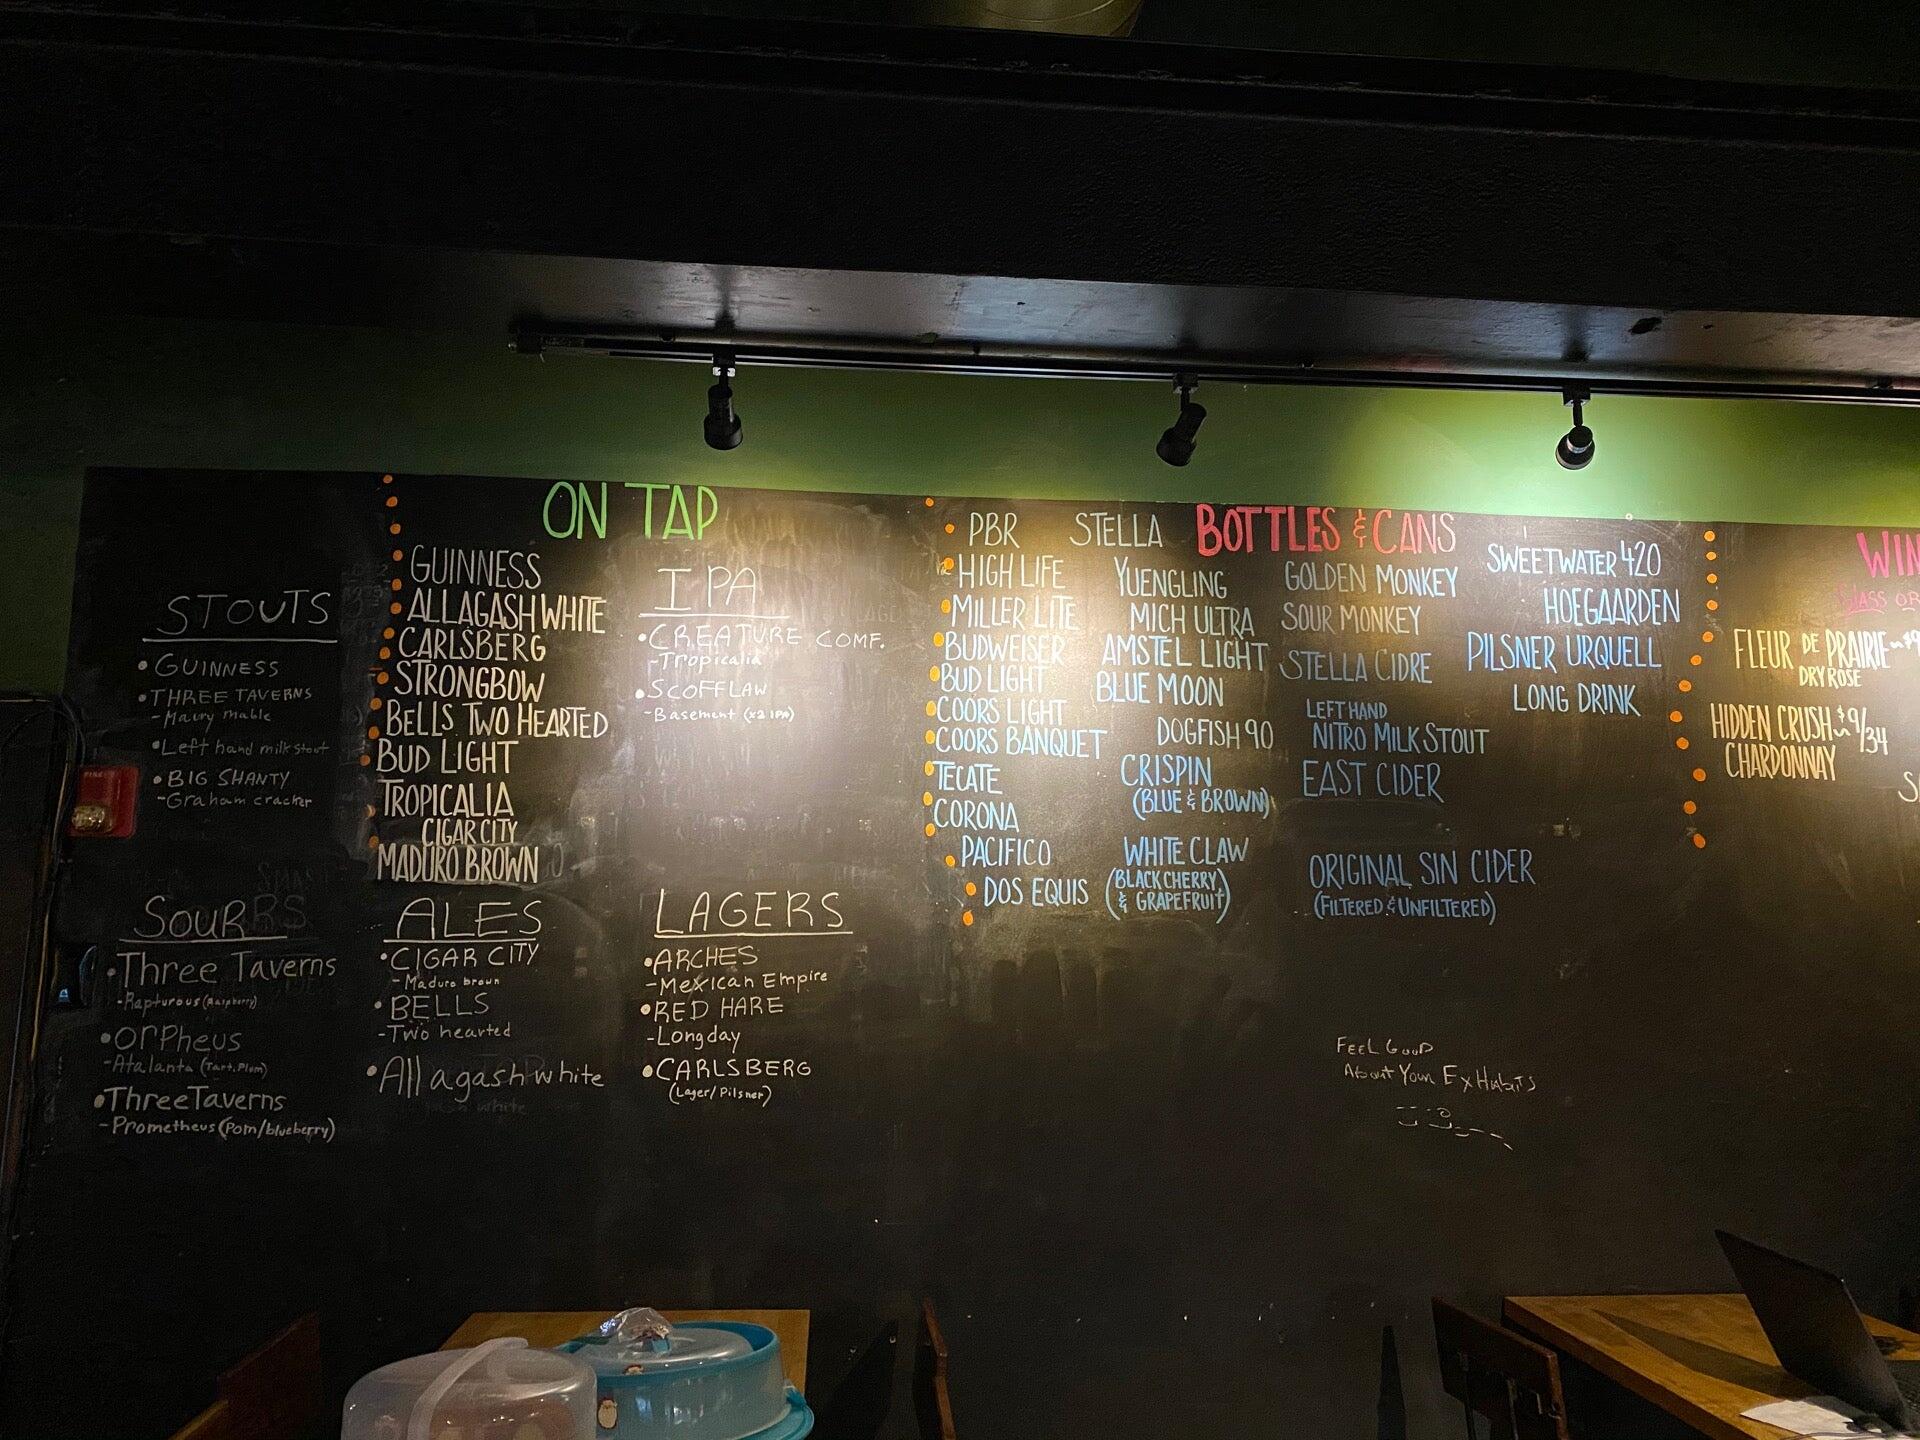 STOUTS
•GUINNESS
•THREE TAVERNS
•Left hand milk stout
•BIG SHANTY
-Graham cracker
SOUR
•Three Taverns
-Rapturous (Raspberry)
•Orpheus
-Atalanta (Tart.Plum)
•Three Taverns
-Prometheus (Pom/blueberry)
ON TAP
GUINNESS
ALLAGASH WHITE
CARLSBERG
STRONGBOW
BELLS TWO HEARTED
BUD LIGHT
TROPICALIA
CIGAR CITY
MADURO BROWN
IPA
•CREATURE COMF.
-Tropicalia
•SCOFFLAW
-Basement (x2 IPA)
ALES
•CIGAR CITY
-Maduro brown
•BELLS
-Two hearted
•Allagash white
LAGERS
•ARCHES
-Mexican Empire
•RED HARE
-Longday
•CARLSBERG
(Lager/Pilsner)
BOTTLES & CANS
PBR
HIGH LIFE
MILLER LITE
BUDWEISER
BUD LIGHT
COORS LIGHT
COORS BANQUET
TECATE
CORONA
PACIFICO
DOS EQUIS
STELLA
YUENGLING
MICH ULTRA
AMSTEL LIGHT
BLUE MOON
DOGFISH 90
CRISPIN
(BLUE & BROWN)
WHITE CLAW
(BLACK CHERRY
& GRAPEFRUIT)
GOLDEN MONKEY
SOUR MONKEY
STELLA CIDRE
LEFT HAND
NITRO MILK STOUT
EAST CIDER
ORIGINAL SIN CIDER
(FILTERED & UNFILTERED)
SWEETWATER 420
HOEGAARDEN
PILSNER URQUELL
LONG DRINK
FEEL GOOD
ABOUT YOUR
WIN
GLASS OR
FLEUR DE PRAIRIE
DRY ROSE
HIDDEN CRUSH $9/34
CHARDONNAY